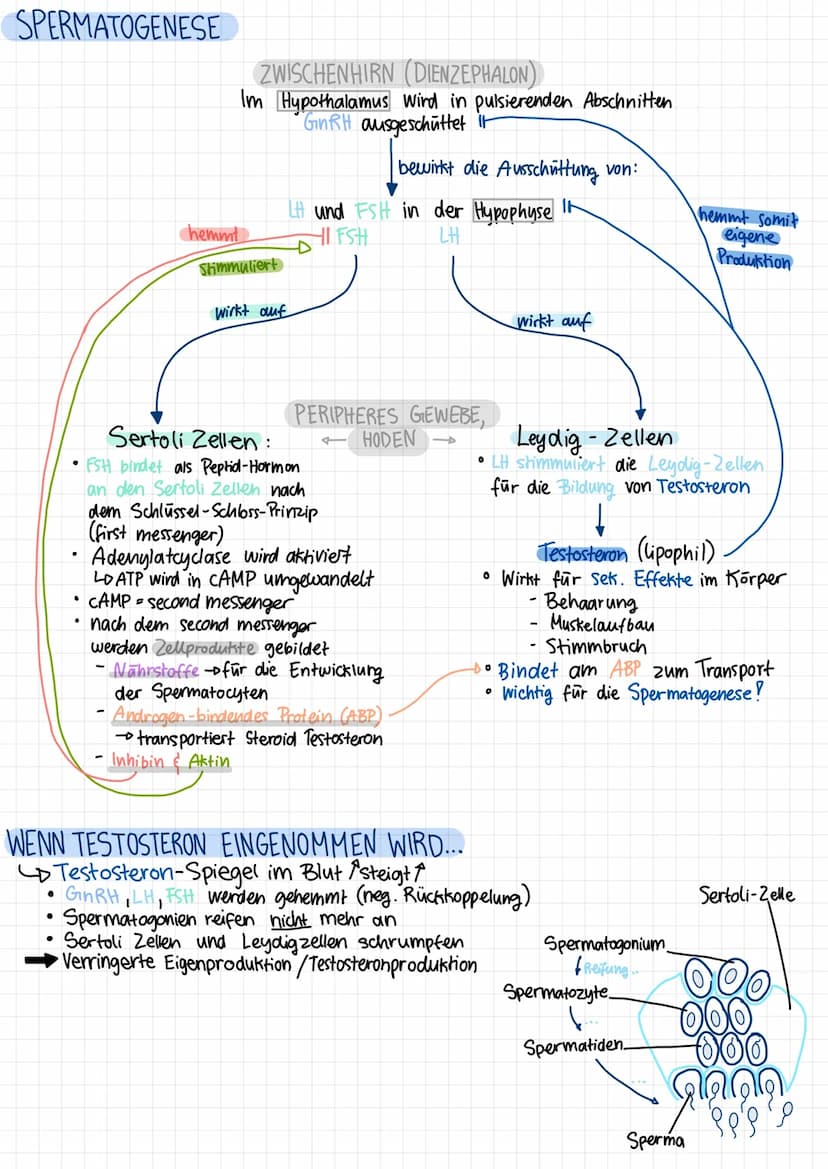 SPERMATOGENESE
ZWISCHENHIRN (DIENZEPHALON)
Im Hypothalamus wird in pulsierenden Abschnitten
GnRH ausgeschüttet
bewirkt die Ausschüttung von:
LH und FSH in der Hypophyse
hemmt somit
eigene
Produktion
hemmt
FSH
LH
stimmuliert
wirkt auf
wirkt auf
PERIPHERES GEWEBE,
← HODEN →
Sertoli Zellen:
• FSH bindet als Peptid-Hormon
an den Sertoli Zellen nach
dem Schlüssel-Schloss-Prinzip
(first messenger)
• Adenylatcyclase wird aktiviert
↳ ATP wird in cAMP umgewandelt
• cAMP = second messenger
• nach dem second messenger
werden Zellprodukte gebildet
- Nährstoffe → für die Entwicklung
der Spermatocyten
- Androgen-bindendes Protein (ABP)
→ transportiert Steroid Testosteron
- Inhibin & Aktin
Leydig-Zellen
• LH stimmuliert die Leydig-Zellen
für die Bildung von Testosteron
Testosteron (lipophil)
• Wirkt für sek. Effekte im Körper
- Behaarung
- Muskelaufbau
- Stimmbruch
• Bindet am ABP zum Transport
• Wichtig für die Spermatogenese!
WENN TESTOSTERON EINGENOMMEN WIRD...
↳ Testosteron-Spiegel im Blut ↑steigt↑
• GnRH, LH, FSH werden gehemmt (neg. Rückkoppelung)
• Spermatogonien reifen nicht mehr an
• Sertoli Zellen und Leydigzellen schrumpfen
→ Verringerte Eigenproduktion / Testosteronproduktion
Sertoli-Zelle
Spermatogonium
Reifung..
Spermatozyte
...
Spermatiden
...
Sperma